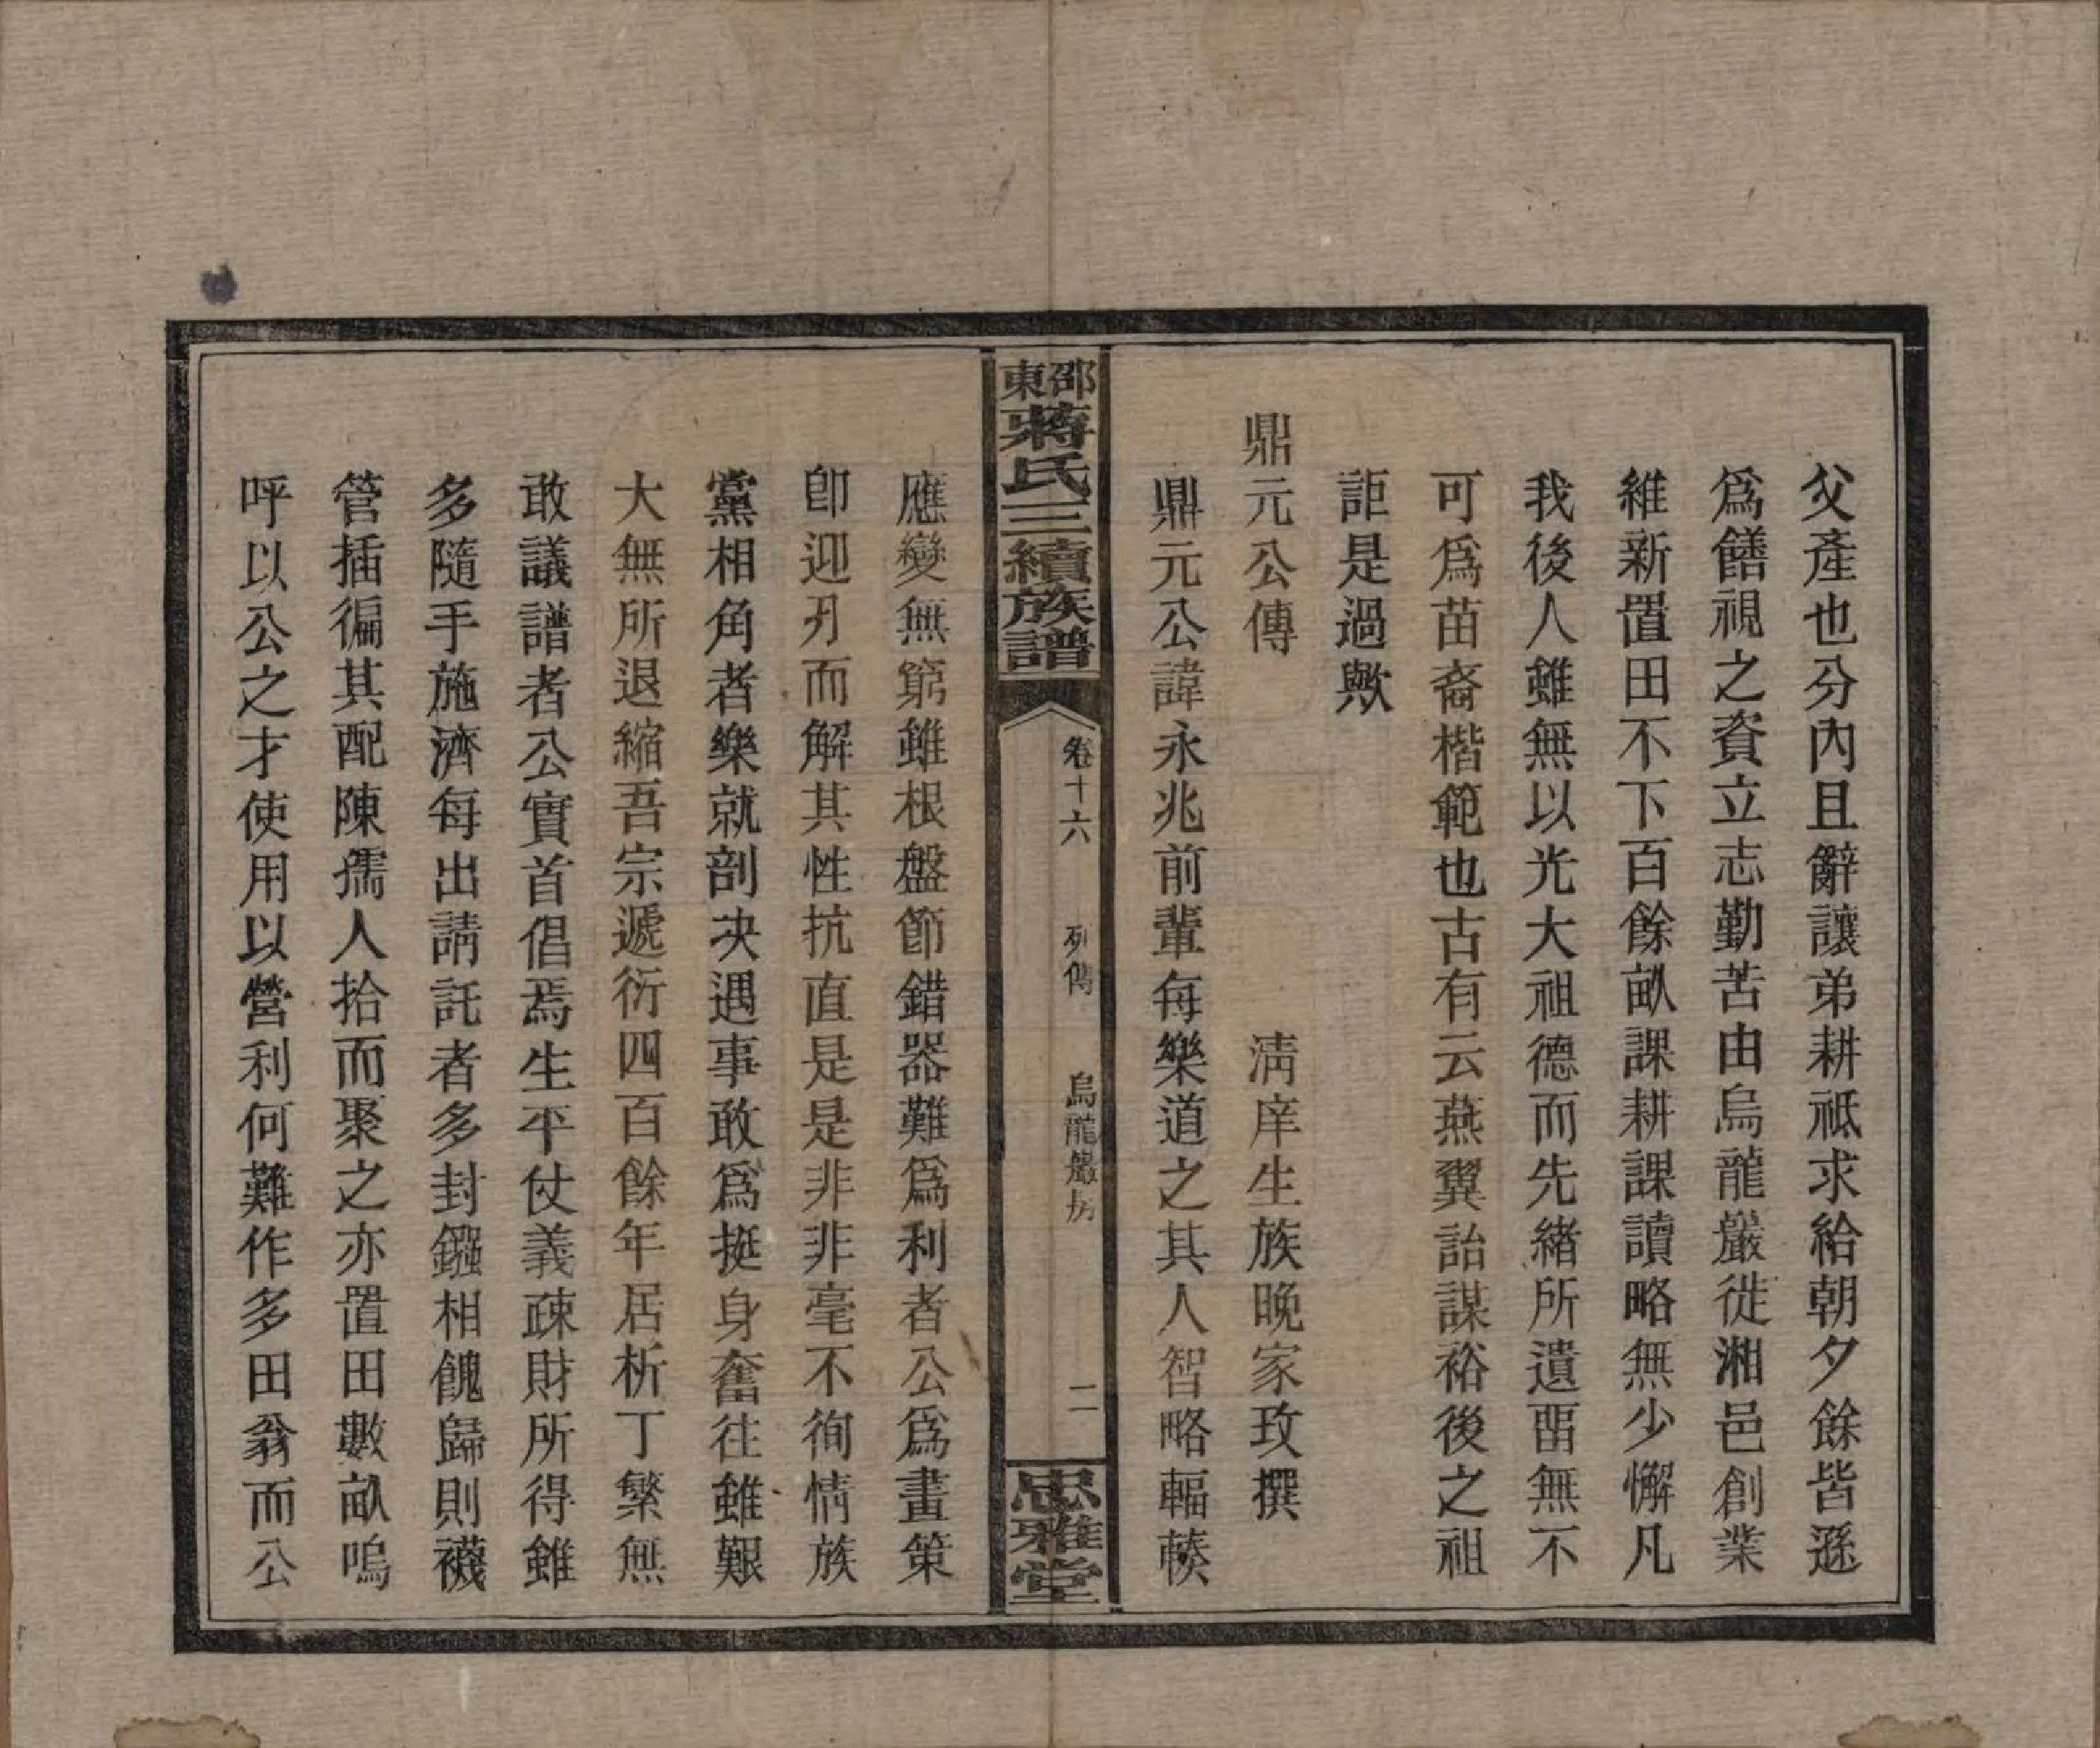 父產也分內且辭讓弟耕祗求給朝夕餘皆遜
爲饍視之資立志勤苦由烏龍巖徙湘邑創業
維新置田不下百餘畝課耕課讀略無少懈凡
我後人雖無以光大祖德而先緒所遺畱無不
可爲苗裔楷範也古有云燕翼詒謀裕後之祖
詎是過歟
鼎元公傳　清庠生族晚家玫撰
鼎元公諱永兆前輩每樂道之其人智略輻輳
邵東蔣氏三續族譜　卷十六　列傳　烏龍巖房　二　忠雅堂
應變無窮雖根盤節錯器難爲利者公爲畫策
卽迎刃而解其性抗直是是非非毫不徇情族
黨相角者樂就剖決遇事敢爲挺身奮往雖艱
大無所退縮吾宗遞衍四百餘年居析丁繁無
敢議譜者公實首倡焉生平仗義疎財所得雖
多隨手施濟每出請託者多封鏹相餽歸則襪
管插徧其配陳孺人拾而聚之亦置田數畝嗚
呼以公之才使用以營利何難作多田翁而公